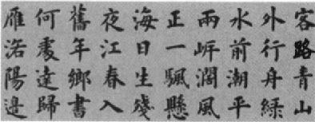 客路青山
外行舟綠
水前潮平
兩岸濶風
正一颿懸
海日生殘
夜江春入
舊年鄉書
何處達歸
雁洛陽邊